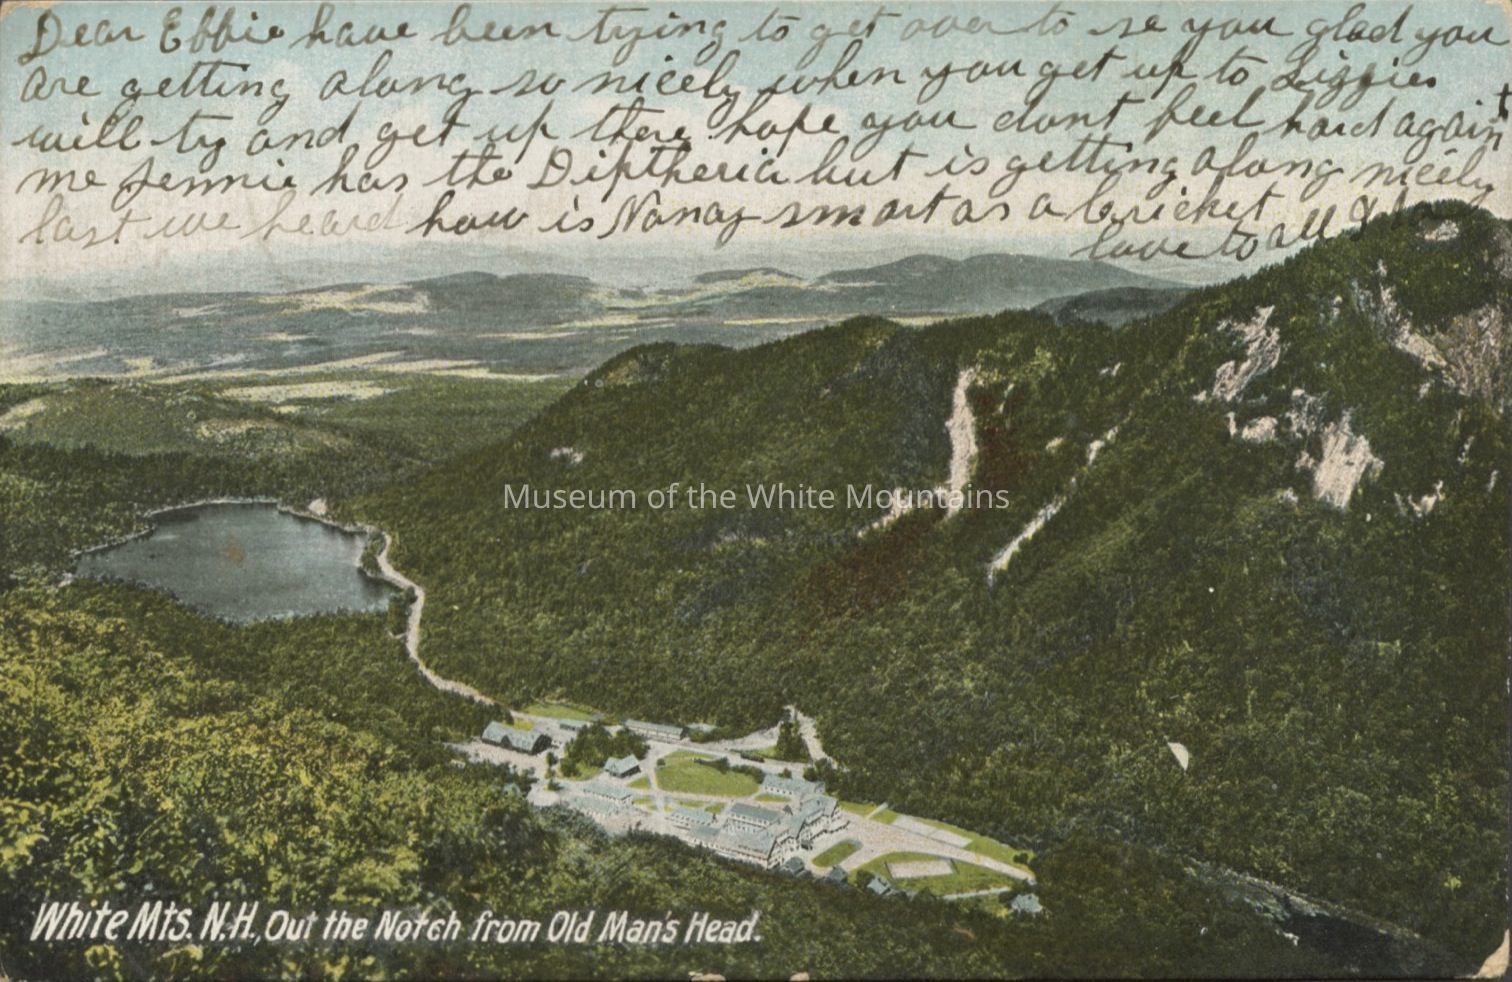 Dear Effie have been trying to get over to se you glad you
are getting along so nicely when you get up to Lizzies
will try and get up there hope you dont feel hard again t
me Jennie has the Diptheria but is getting along nicely
last we heard how is Nanay smart as a cricket
love to all
Museum of the White Mountains
White Mts. N.H., Out the Notch from Old Man's Head.